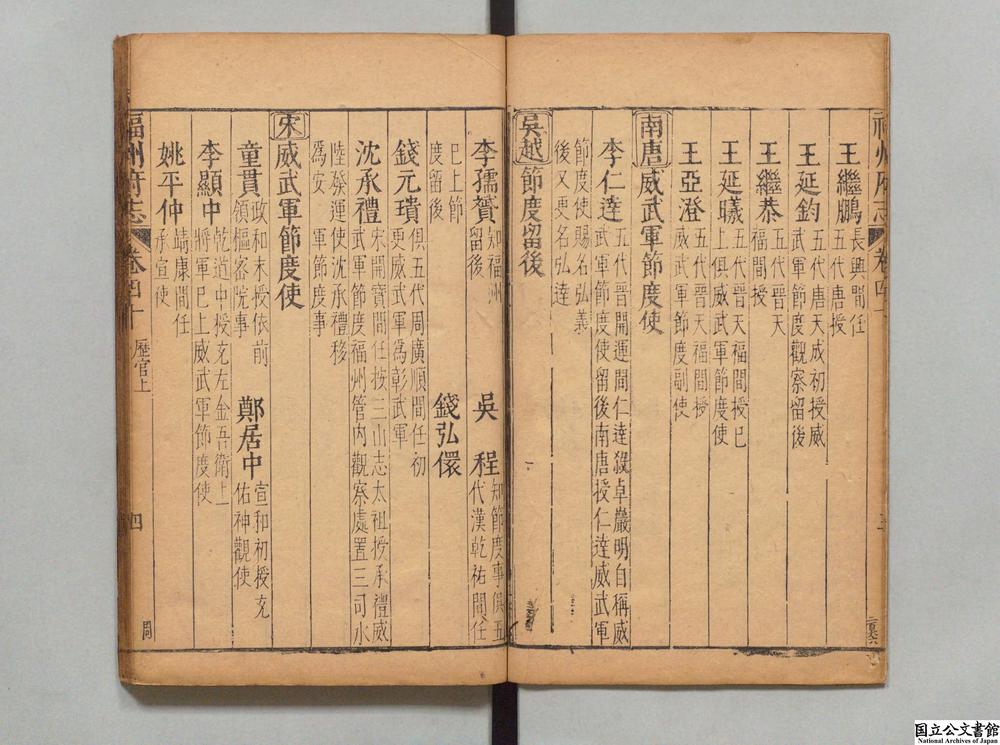 王繼鵬長興間任五代唐授
王延鈞五代唐天成初授威武軍節度觀察留後
王繼恭五代晉天福間授
王延曦五代晉天福間授巳上俱威武軍節度使
王亞澄五代晉天福間授威武軍節度副使
南唐威武軍節度使
李仁達五代晉開運間仁達殺卓巖明自稱威武軍節度使留後南唐授仁達威武軍
節度使賜名弘義後又更名弘達
吳越節度留後
李孺贇知福州留後 吳程知節度事俱五代漢乾祐間任
巳上節度留後 錢弘儇
錢元璝俱五代周廣順間任初更威武軍爲彰武軍
沈承禮宋開寶間任按三山志太祖授承禮威武軍節度福州管内觀察處置三司水
陸發運使沈承禮移爲安軍節度事
宋威武軍節度使
童貫政和末授依前領樞密院事 鄭居中宣和初授充佑神觀使
李顯中乾道中授充左金吾衛上將軍巳上威武軍節度使
姚平仲靖康間任承宣使
福州府志 卷四十 歷官上 四
国立公文書館
National Archives of Japan